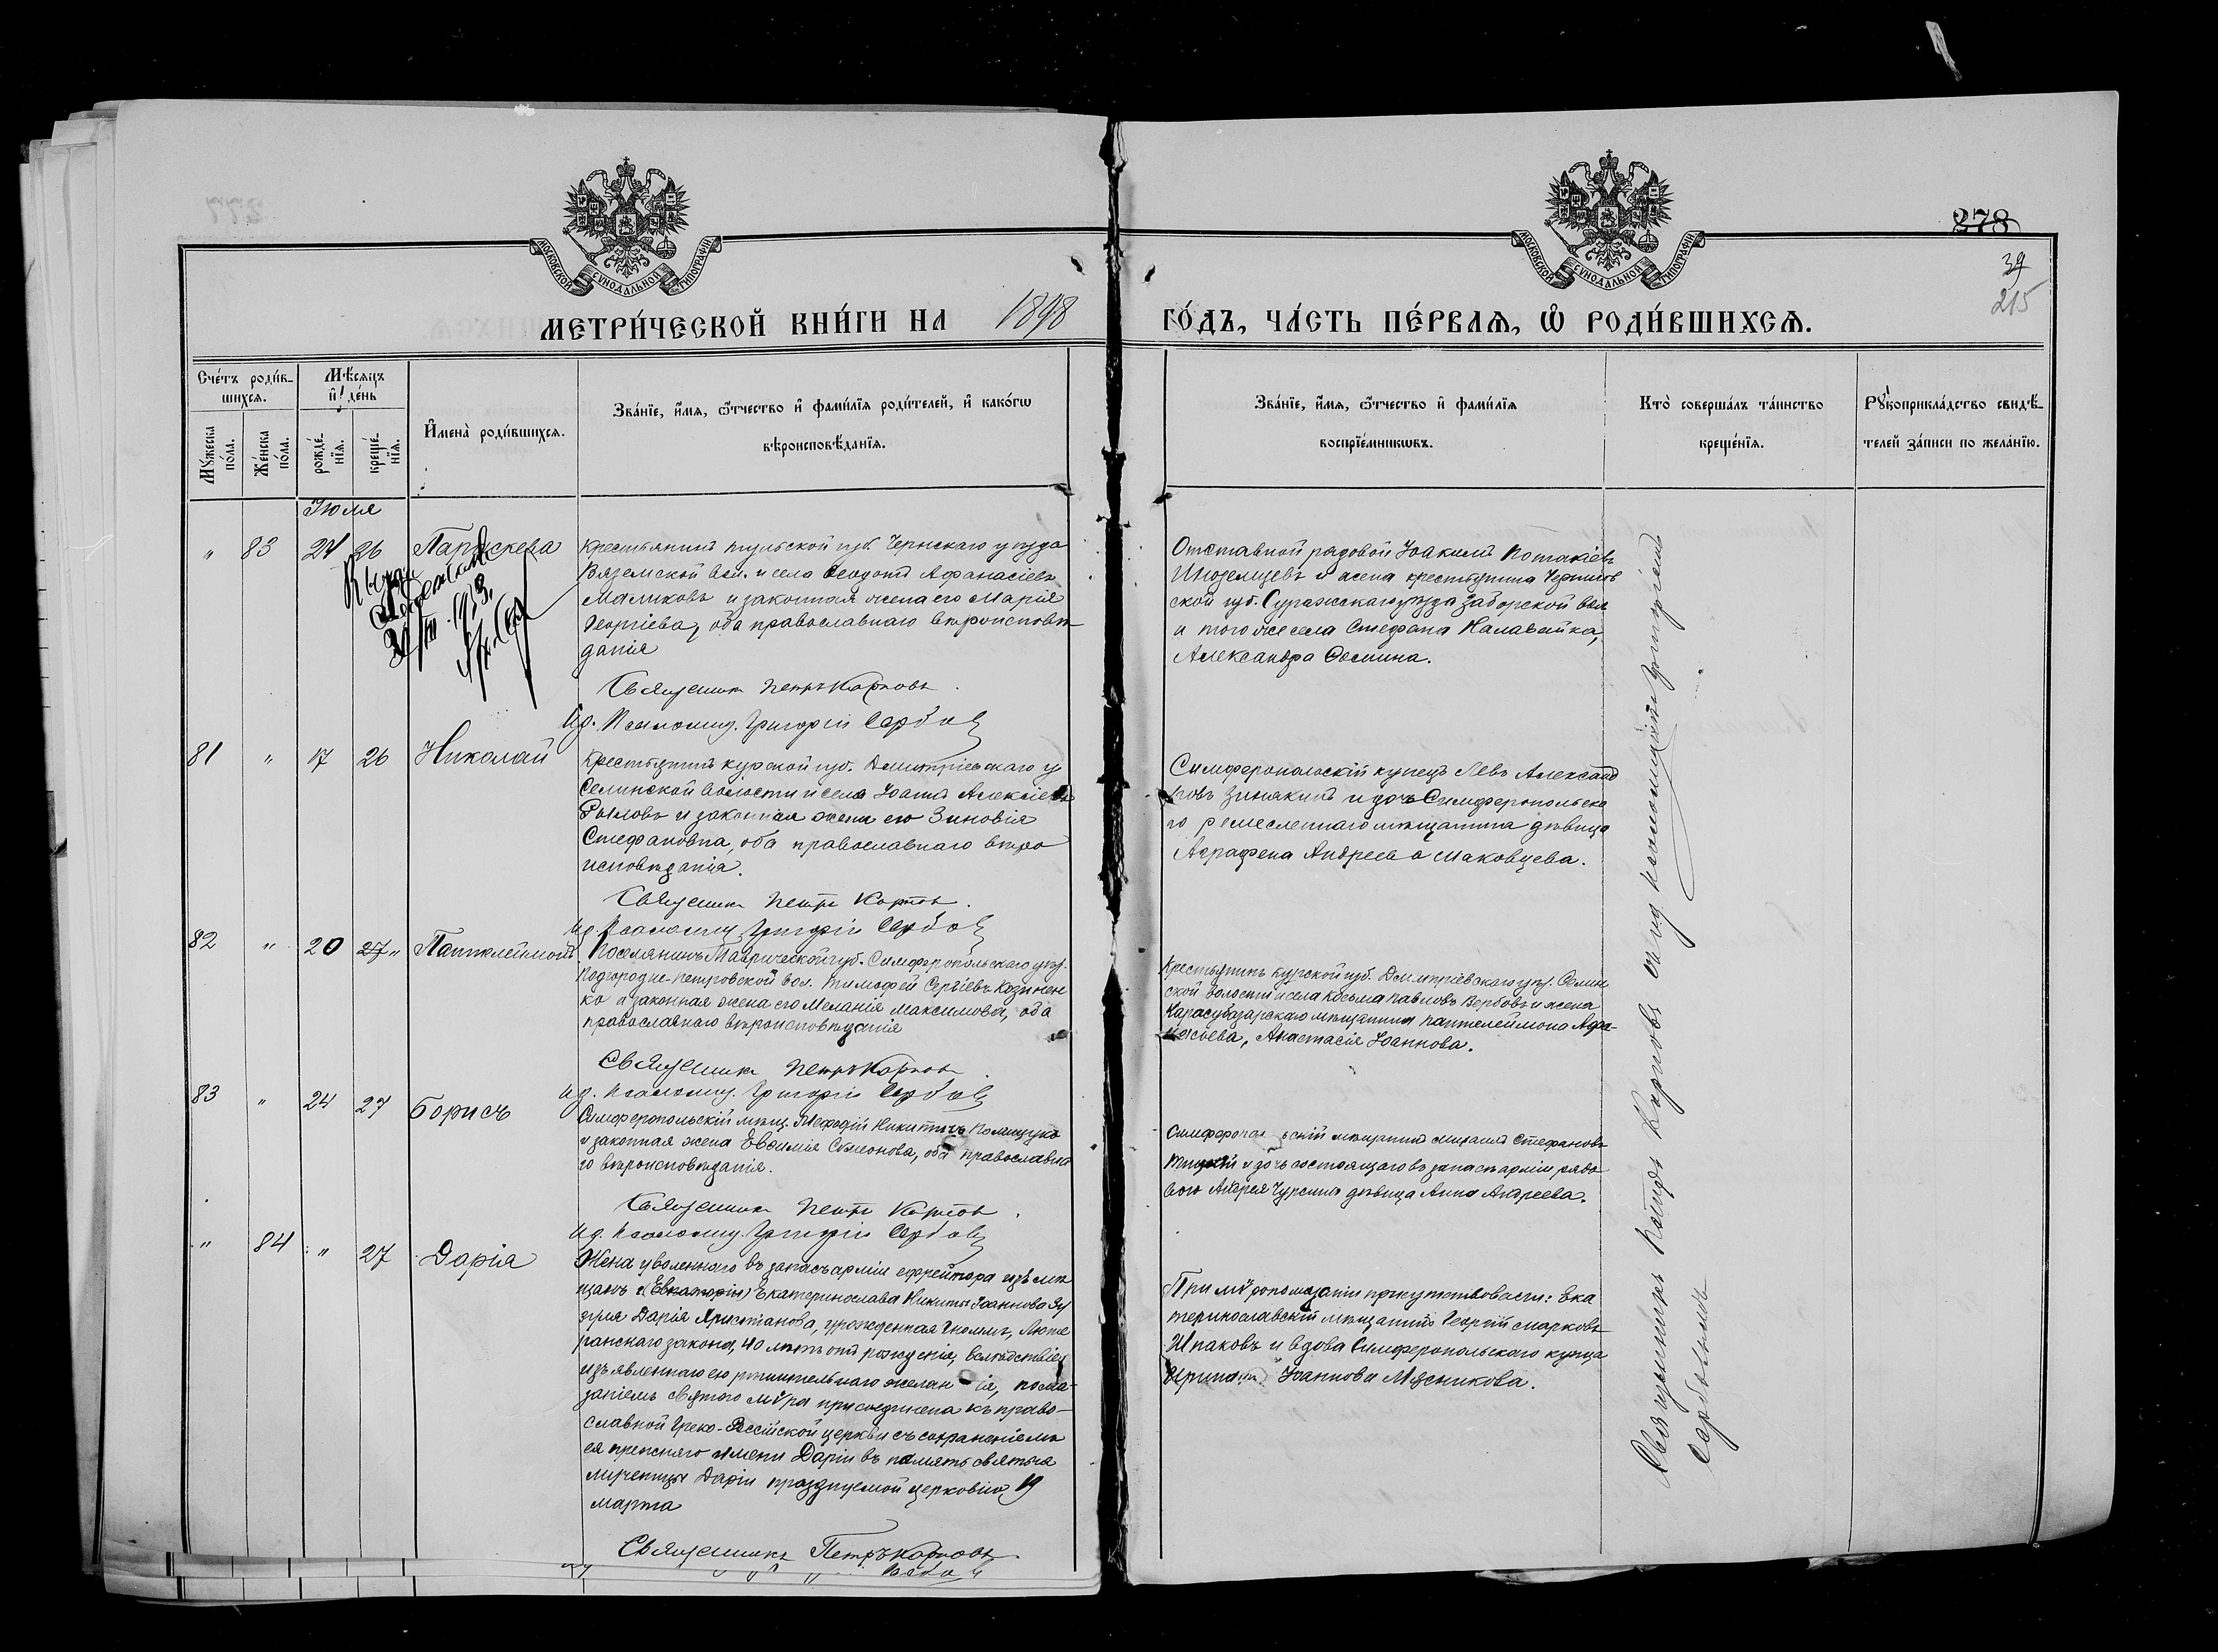 278
39
215
МЕТРИ́ЧЕСКОЙ КНИ́ГИ НА 1898 ГО́ДЪ, ЧА́СТЬ ПЕ́РВАѦ, Ѡ҆ РОДИ́ВШИХСѦ.
Сче́тъ роди́в-
шихсѧ.
Мꙋ́жеска по́ла.
Же́нска по́ла.
Мѣ́сѧцъ
и҆ де́нь
рожде́-
нїѧ.
креще́-
нїѧ.
И҆мена̀ роди́вшихсѧ.
Зва́нїе, и҆́мѧ, ѻ҆́тчество и҆ фами́лїѧ роди́телей, и҆ како́гѡ
вѣроисповѣ́данїѧ.
Зва́нїе, и҆́мѧ, ѻ҆́тчество и҆ фами́лїѧ
воспрїе́мникѡвъ.
Кто̀ соверша́лъ та́инство
креще́нїѧ.
Рꙋкоприкла́дство свидѣ́-
телей за́писи по жела́нїю.
Іюля
" 83 24 26 Параскева
Крестьянинъ Тульской губ. Чернскаго уѣзда
Вяземской вол. и села Ѳеодотъ Аѳанасіевъ
Маликовъ и законная жена его Марія
Георгіева, оба православнаго вѣроисповѣ-
данія
Священникъ Петръ Карповъ.
Ид. Псаломщ. Григорій Сербовъ
Отставной рядовой Іоакимъ Потапіевъ
Иноземцевъ и жена крестьянина Чернигов
ской губ. Суражскаго уѣзда Заборской вол
и того же села Стефана Налавайка,
Александра Ѳомина.
81 " 17 26 Николай
Крестьянинъ Курской губ. Дмитріевскаго у
Селинской волости и села Іоаннъ Алексіевъ
и законная жена его Зиновія
Стефановна, оба православнаго вѣро
исповѣданія.
Священникъ Петръ Карповъ.
Ид. Псаломщ. Григорій Сербовъ
Симферопольскій купецъ Левъ Александ
ровъ Зинякинъ и дочь Симферопольска
го ремесленнаго мѣщанина дѣвица
Аграфена Андреева Маковцева.
82 " 20 27 " Пантелеймонъ
Поселянинъ Таврической губ. Симферопольскаго уѣз.
Подгородне-Петровской вол. Тимофей Сергіевъ Козинен
ко и законная жена его Меланія Максимова, оба
православнаго вѣроисповѣданія
Священникъ Петръ Карповъ
Ид. Псаломщ. Григорій Сербовъ
Крестьянинъ Курской губ. Дмитріевскаго уѣз. Селин
ской волости и села Косьма Павловъ Вербовъ и жена
Карасубазарскаго мѣщанина Пантелеймона Афа-
насьева, Анастасія Іоаннова.
83 " 24 27 Борисъ
Симферопольскій мѣщ. Меѳодій Никитинъ Полищукъ
и законная жена Евѳимія Симеонова, оба православна
го вѣроисповѣданія.
Священникъ Петръ Карповъ.
Ид. Псаломщ. Григорій Сербовъ
Симферопольскій мѣщанинъ Михаилъ Стефановъ
и дочь состоящаго въ запасѣ арміи рядо-
вого Андрея Чурсина дѣвица Анна Андреева.
" 84 " 27 Дарія
Жена уволеннаго въ запасъ арміи ефрейтора изъ мѣ
щанъ г. (Евпаторіи) Екатеринослава Никиты Іоаннова
Дарія Христіанова, урожденная Люте
ранскаго закона, 40 лѣтъ отъ рожденія, вслѣдствіе
изъявленнаго ею рѣшительнаго желанія, пома-
заніемъ святого мѵра присоединена къ право-
славной Греко-Россійской церкви съ сохраненіемъ
ея прежняго имени Дарія въ память святыя
мученицы Даріи празднуемой церковію 19
марта
Священникъ Петръ Карповъ
При мѵропомазаніи присутствовали: Ека
теринославскій мѣщанинъ Георгій Марковъ
Шпаковъ и вдова Симферопольскаго купца
Ирина Іоаннова Мясникова.
Священникъ Петръ Карповъ съ ид псаломщика Григоріемъ
Сербовымъ